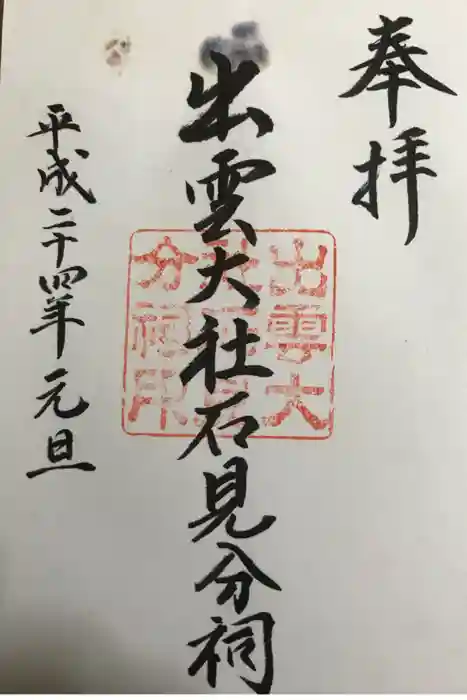 奉拝
出雲大社石見分祠
出雲大
社石見
分祠印
平成二十四年元旦